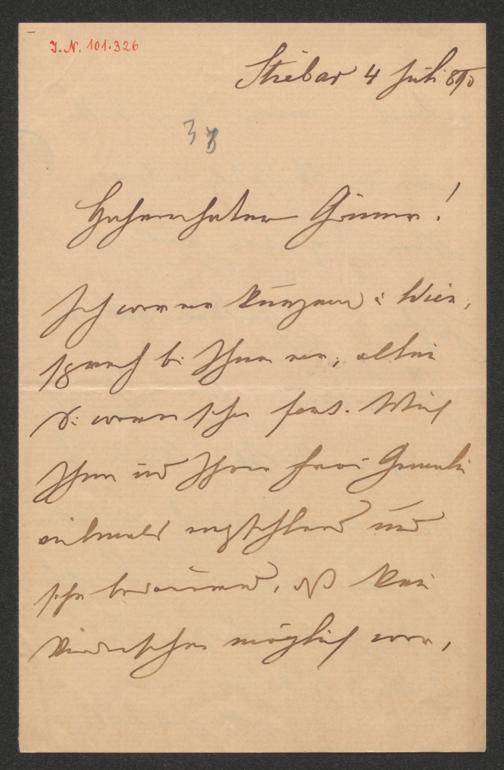 I.N. 101.326
Stiebar 4 Juli 890
38
Hochverehrter Gönner!
Ich war vor Kurzem i. Wien,
sprach b. Ihnen vor, allein
S. waren schon fort. Mich
Ihnen und Ihrer Frau Gemahlin
vielmals empfehlend und
sehr bedauernd, daß kein
Wiedersehen möglich war,